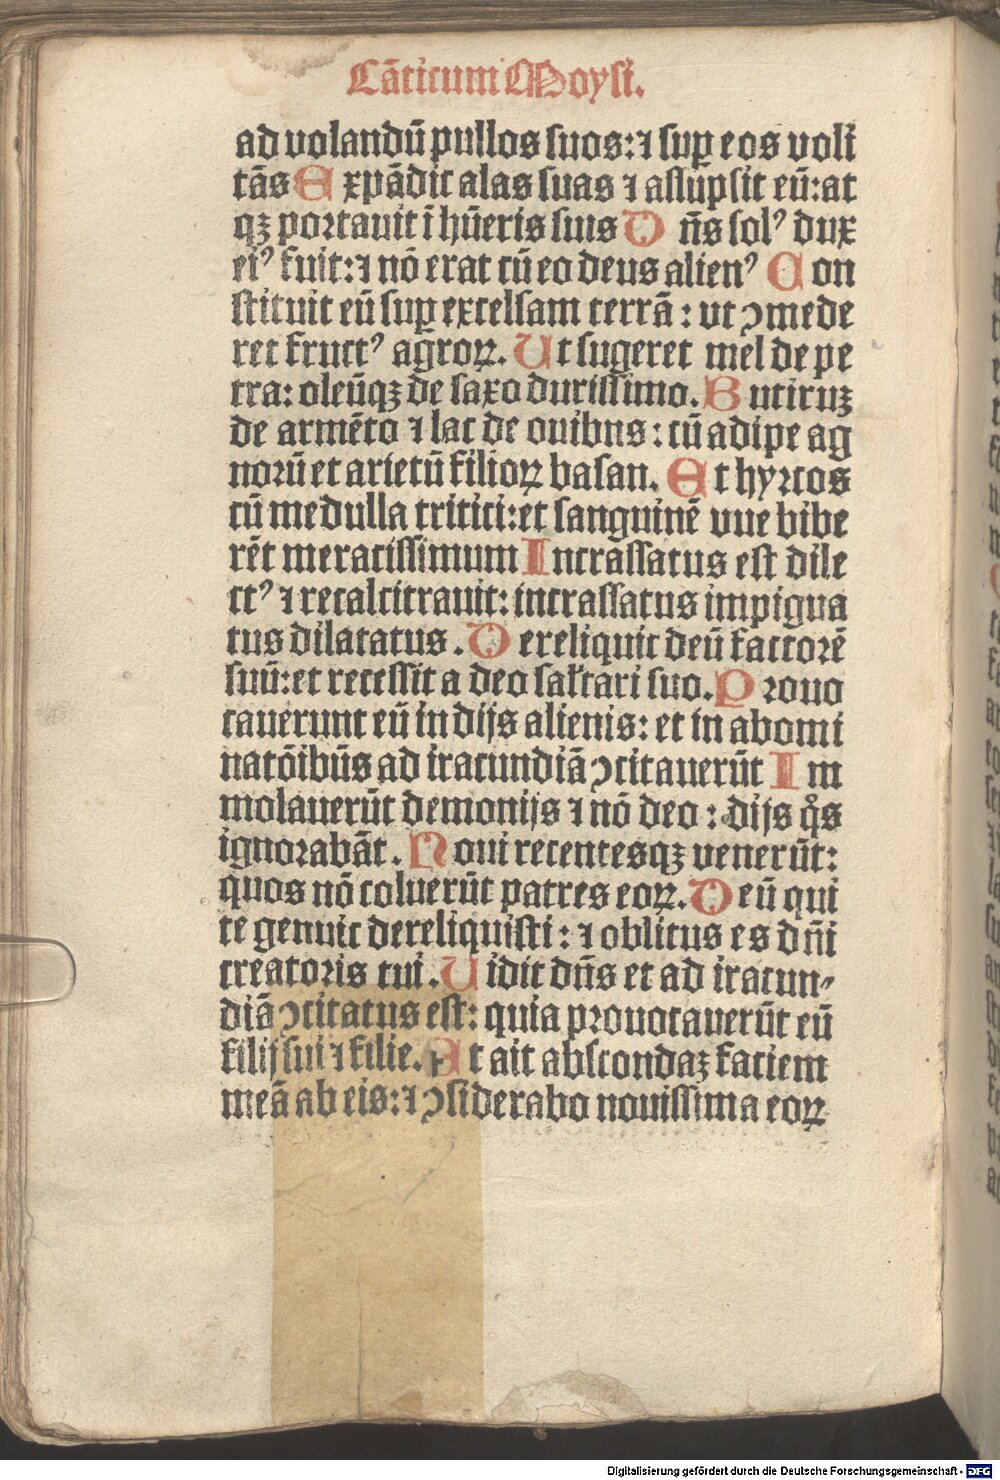 Cāticum Moysi.
ad volandū pullos suos:⁊ suꝑ eos voli
tās Expādit alas suas ⁊ assūpsit eū:at
qꝫ portauit ī hūeris suis Dn̄s solꝰ dux
eiꝰ fuit:⁊ nō erat cū eo deus alienꝰ Con
stituit eū suꝑ excelsam terrā : vt ꝯmede
ret fructꝰ agroꝝ. Ut sugeret mel de pe
tra: oleūqꝫ de saxo durissimo. Butiruꝫ
de armēto ⁊ lac de ouibus : cū adipe ag
norū et arietū filioꝝ basan. Et hyrcos
cū medulla tritici:et sanguinē vue bibe
rēt meracissimum Incrassatus est dile
ctꝰ ⁊ recalcitrauit: incrassatus impigua
tus dilatatus. Dereliquit deū factorē
suū:et recessit a deo sal̄tari suo. Prouo
cauerunt eū in dijs alienis: et in abomi
natōibūs ad iracundiā ꝯcitauerūt Im
molauerūt demonijs ⁊ nō deo : dijs qͦs
ignorabāt. Noui recentesqꝫ venerūt:
quos nō coluerūt patres eoꝝ. Deū qui
te genuit dereliquisti : ⁊ oblitus es dn̄i
creatoris tui. Uidit dn̄s et ad iracun⸗
diā ꝯcitatus est: quia prouocauerūt eū
filij sui ⁊ filie. Et ait abscondaꝫ faciem
meā ab eis:⁊ ꝯsiderabo nouissima eoꝝ
Digitalisierung gefördert durch die Deutsche Forschungsgemeinschaft - DFG